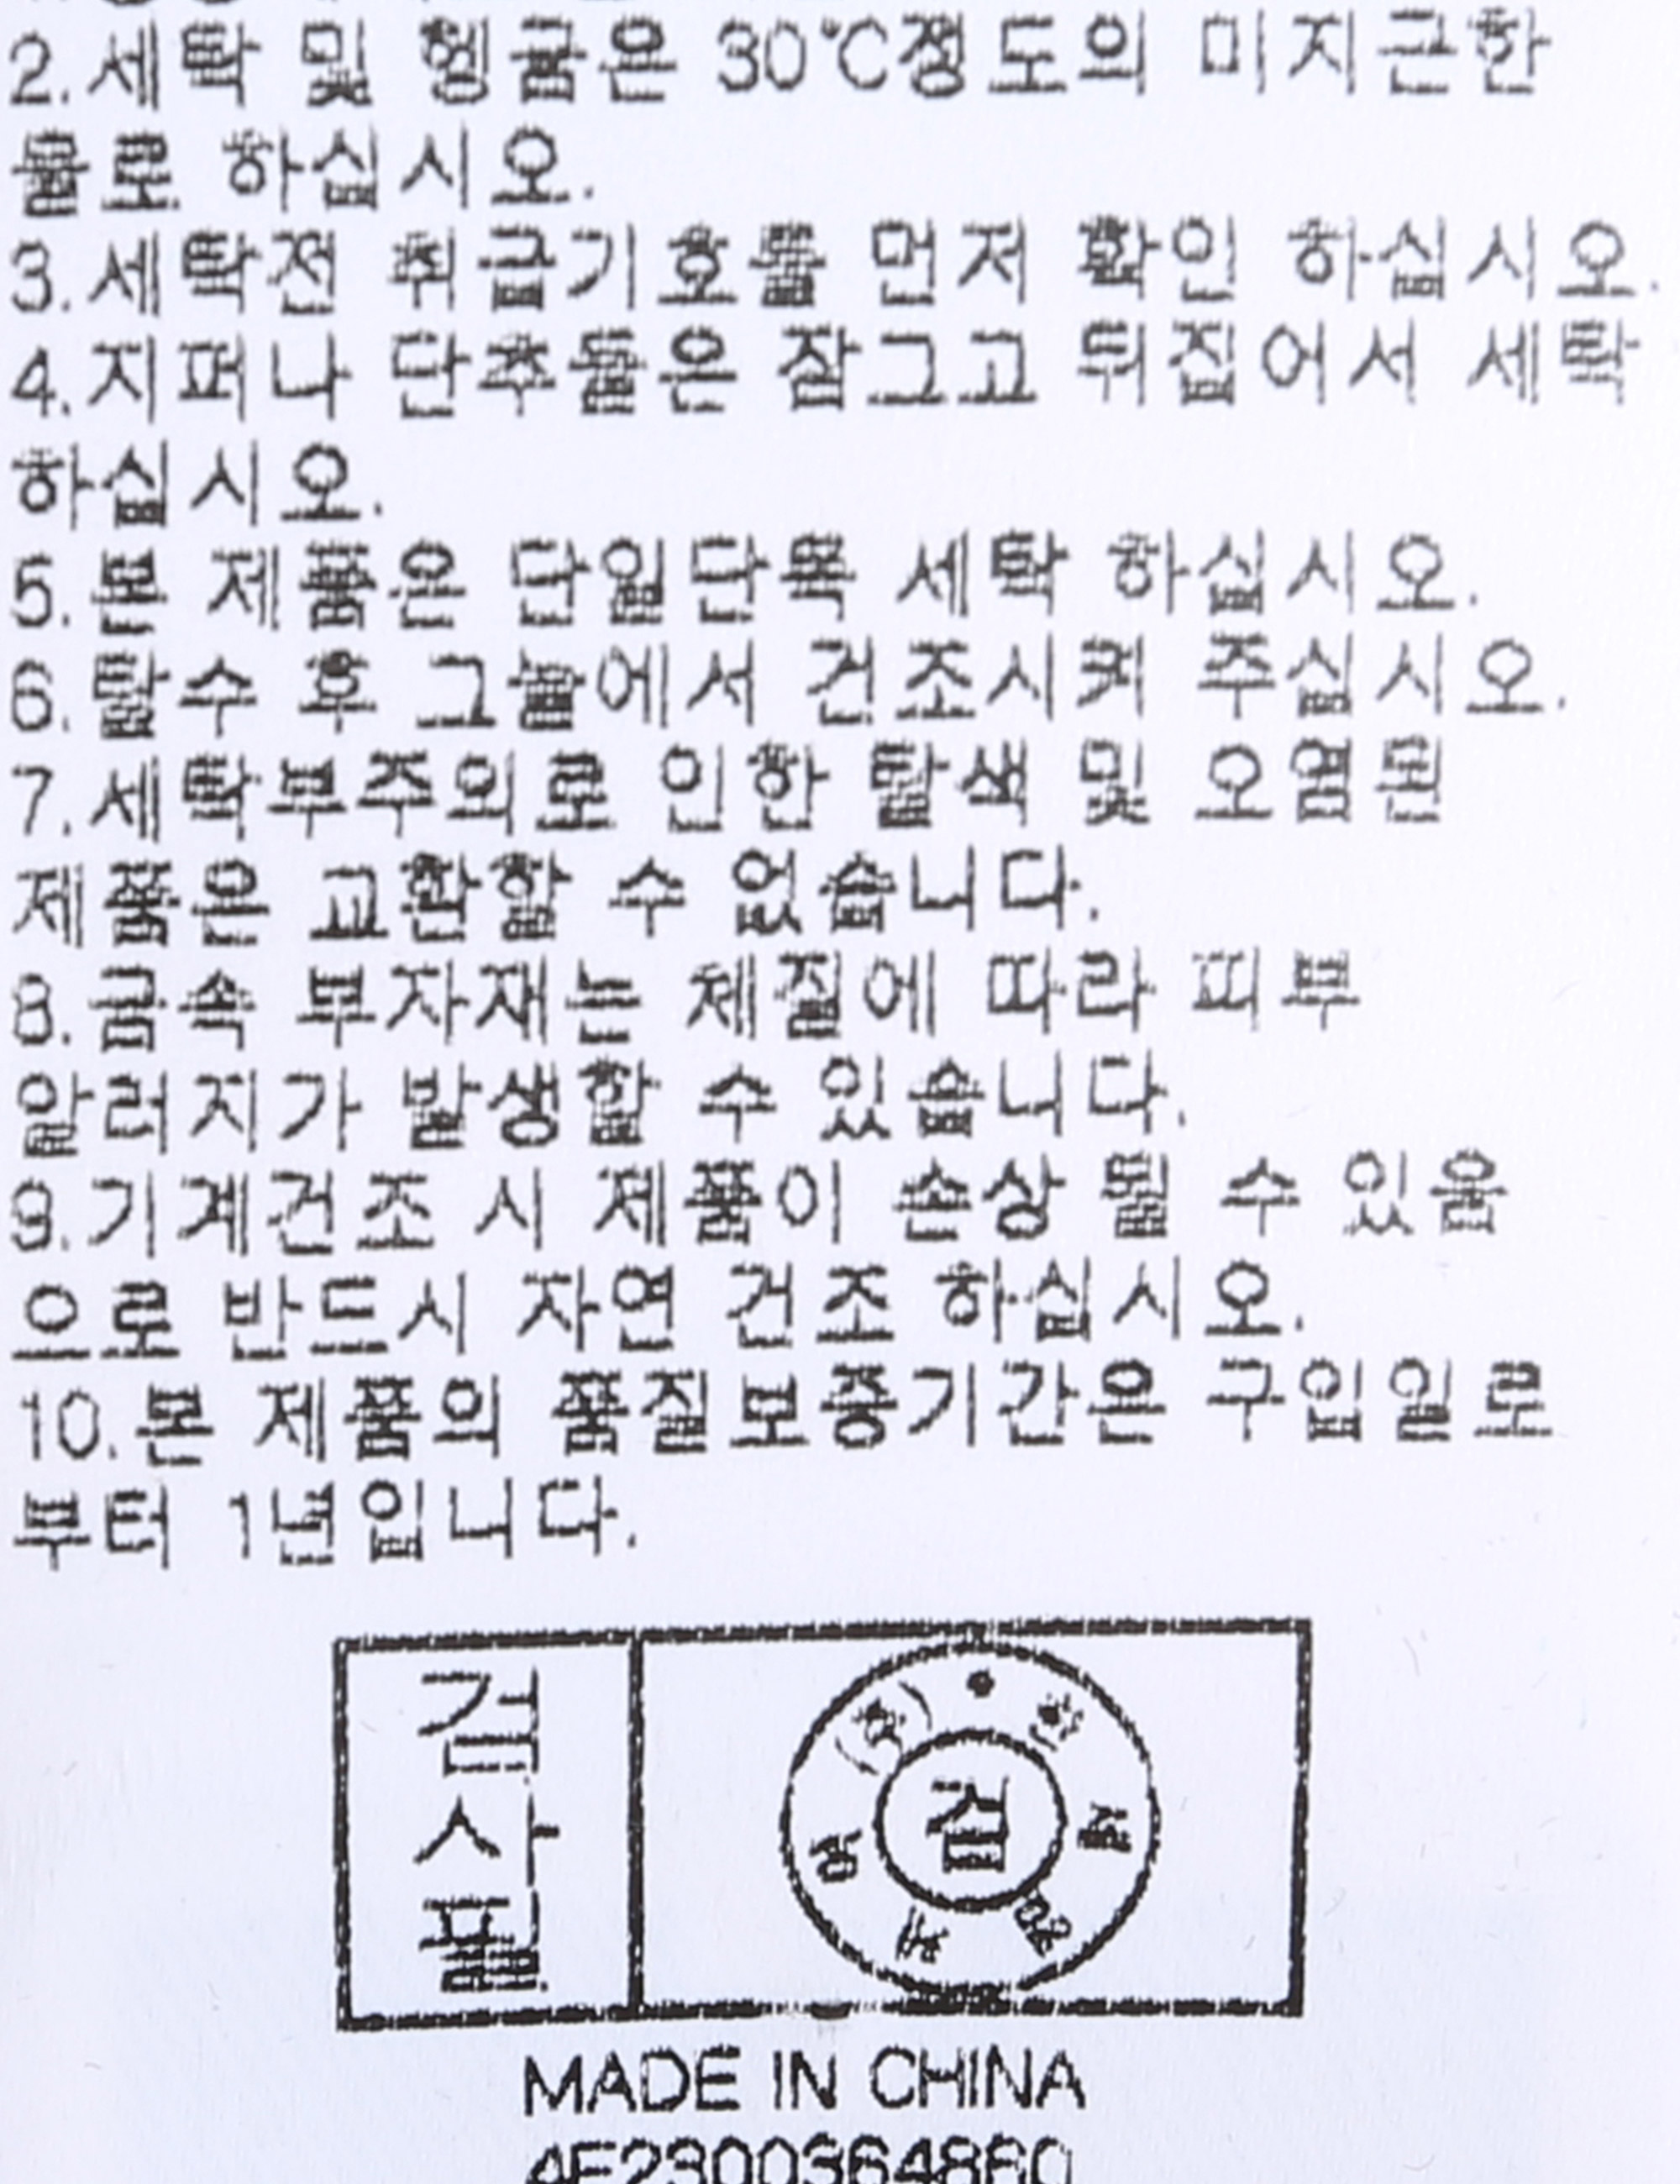 2.세탁 및 헹굼은 30℃정도의 미지근한
물로 하십시오.
3.세탁전 취급기호를 먼저 확인 하십시오.
4.지퍼나 단추들은 잠그고 뒤집어서 세탁
하십시오.
5.본 제품은 단일단독 세탁 하십시오.
6.탈수 후 그늘에서 건조시켜 주십시오.
7.세탁부주의로 인한 탈색 및 오염된
제품은 교환할 수 없습니다.
8.금속 부자재는 체질에 따라 피부
알러지가 발생할 수 있습니다.
9.기계건조 시 제품이 손상 될 수 있음
으로 반드시 자연 건조 하십시오.
10.본 제품의 품질보증기간은 구입일로
부터 1년입니다.
검사필
검
MADE IN CHINA